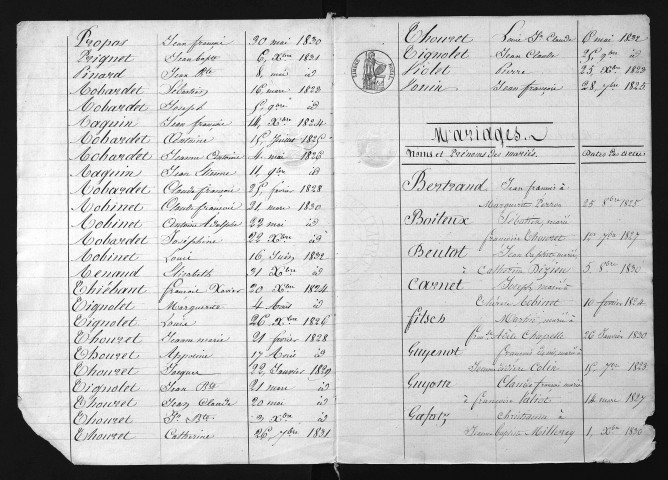 Propos Jean françois 30 mai 1830
Prignet Jean bapt. 6 Xbre 1831
Pinard Jean Bte 8 mai id
Robardet Sébastien 16 mars 1823
Robardet Joseph 5 9bre id
Raguin Jean françois 14 Xbre 1824
Robardet Antoine 15 1826
Robardet Jeanne Antoine 4 mai 1826
Raguin Jean Etienne 11 9bre id
Robardet Claude françois 25 février 1828
Robinet Claude françois 21 mars 1830
Robinet Antoine Adolphe 22 mai id
Robardet Joséphine 22 Xbre id
Robinet Louis 16 1832
Renand Elizabeth 21 Xbre id
Thiébaut françois Xavier 20 Xbre 1824
Tignolet Marguerite 4 Mars id
Tignolet Louise 26 Xbre 1826
Thouret Jeanne marie 21 février 1828
Thouret Appoline 17 Avril id
Thouret Jacques 22 Janvier 1829
Tignolet Jean Bte 21 mars id
Thouret Jean Claude 20 mai id
Thouret Jn Bte 3 Xbre id
Thouret Catherine 26 7bre 1831
Thouret Louis Jn Claude 6 mai 1832
Tignolet Jean Claude 25 9bre id
Violet Pierre 25 Xbre 1823
Vonin Jean françois 28 7bre 1825
Mariages.
Noms et Prénoms des mariés. Dates des actes
Bertrand Jean francois à
Marguerite Perron 25 8bre 1825
Boiteux Sébastien, marié
françoise Thouret 1er 7bre 1827
Beutot Jean baptiste marié
à Catherine Dizien 5 8bre 1830
Carnet Joseph marié à
Thérèse Robinet 10 février 1824
fitsch Martin, marié à
Adèle Chapelle 26 Janvier 1830
Guyenot françois marié à
Jeanne Colin 15 7bre 1828
Guyotte Claude françois marié
à françoise Valiot 14 mars 1827
Gafatz Christianne à
Jeanne baptiste Millerey 1er Xbre 1830